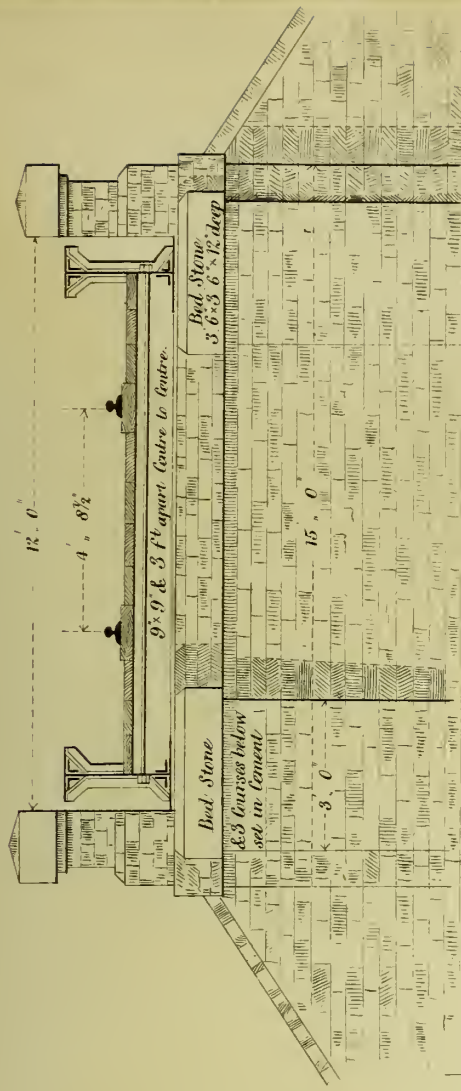 12'. 0"
4' " 8½"
9"×9" & 3 ft apart Centre to Centre.
Bed Stone
3' 6"×3' 6"×12" deep
Bed Stone
& 3 Courses below
set in Cement
3' 0"
15' " 0"